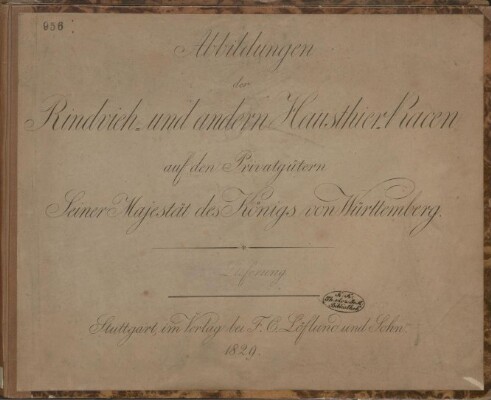 956
Abbildungen
der
Rindvieh- und andern Hausthier-Racen
auf den Privatgütern
Seiner Majestät des Königs von Württemberg.
Lieferung
Stuttgart, im Verlag bei F. C. Löflund und Sohn
1829.